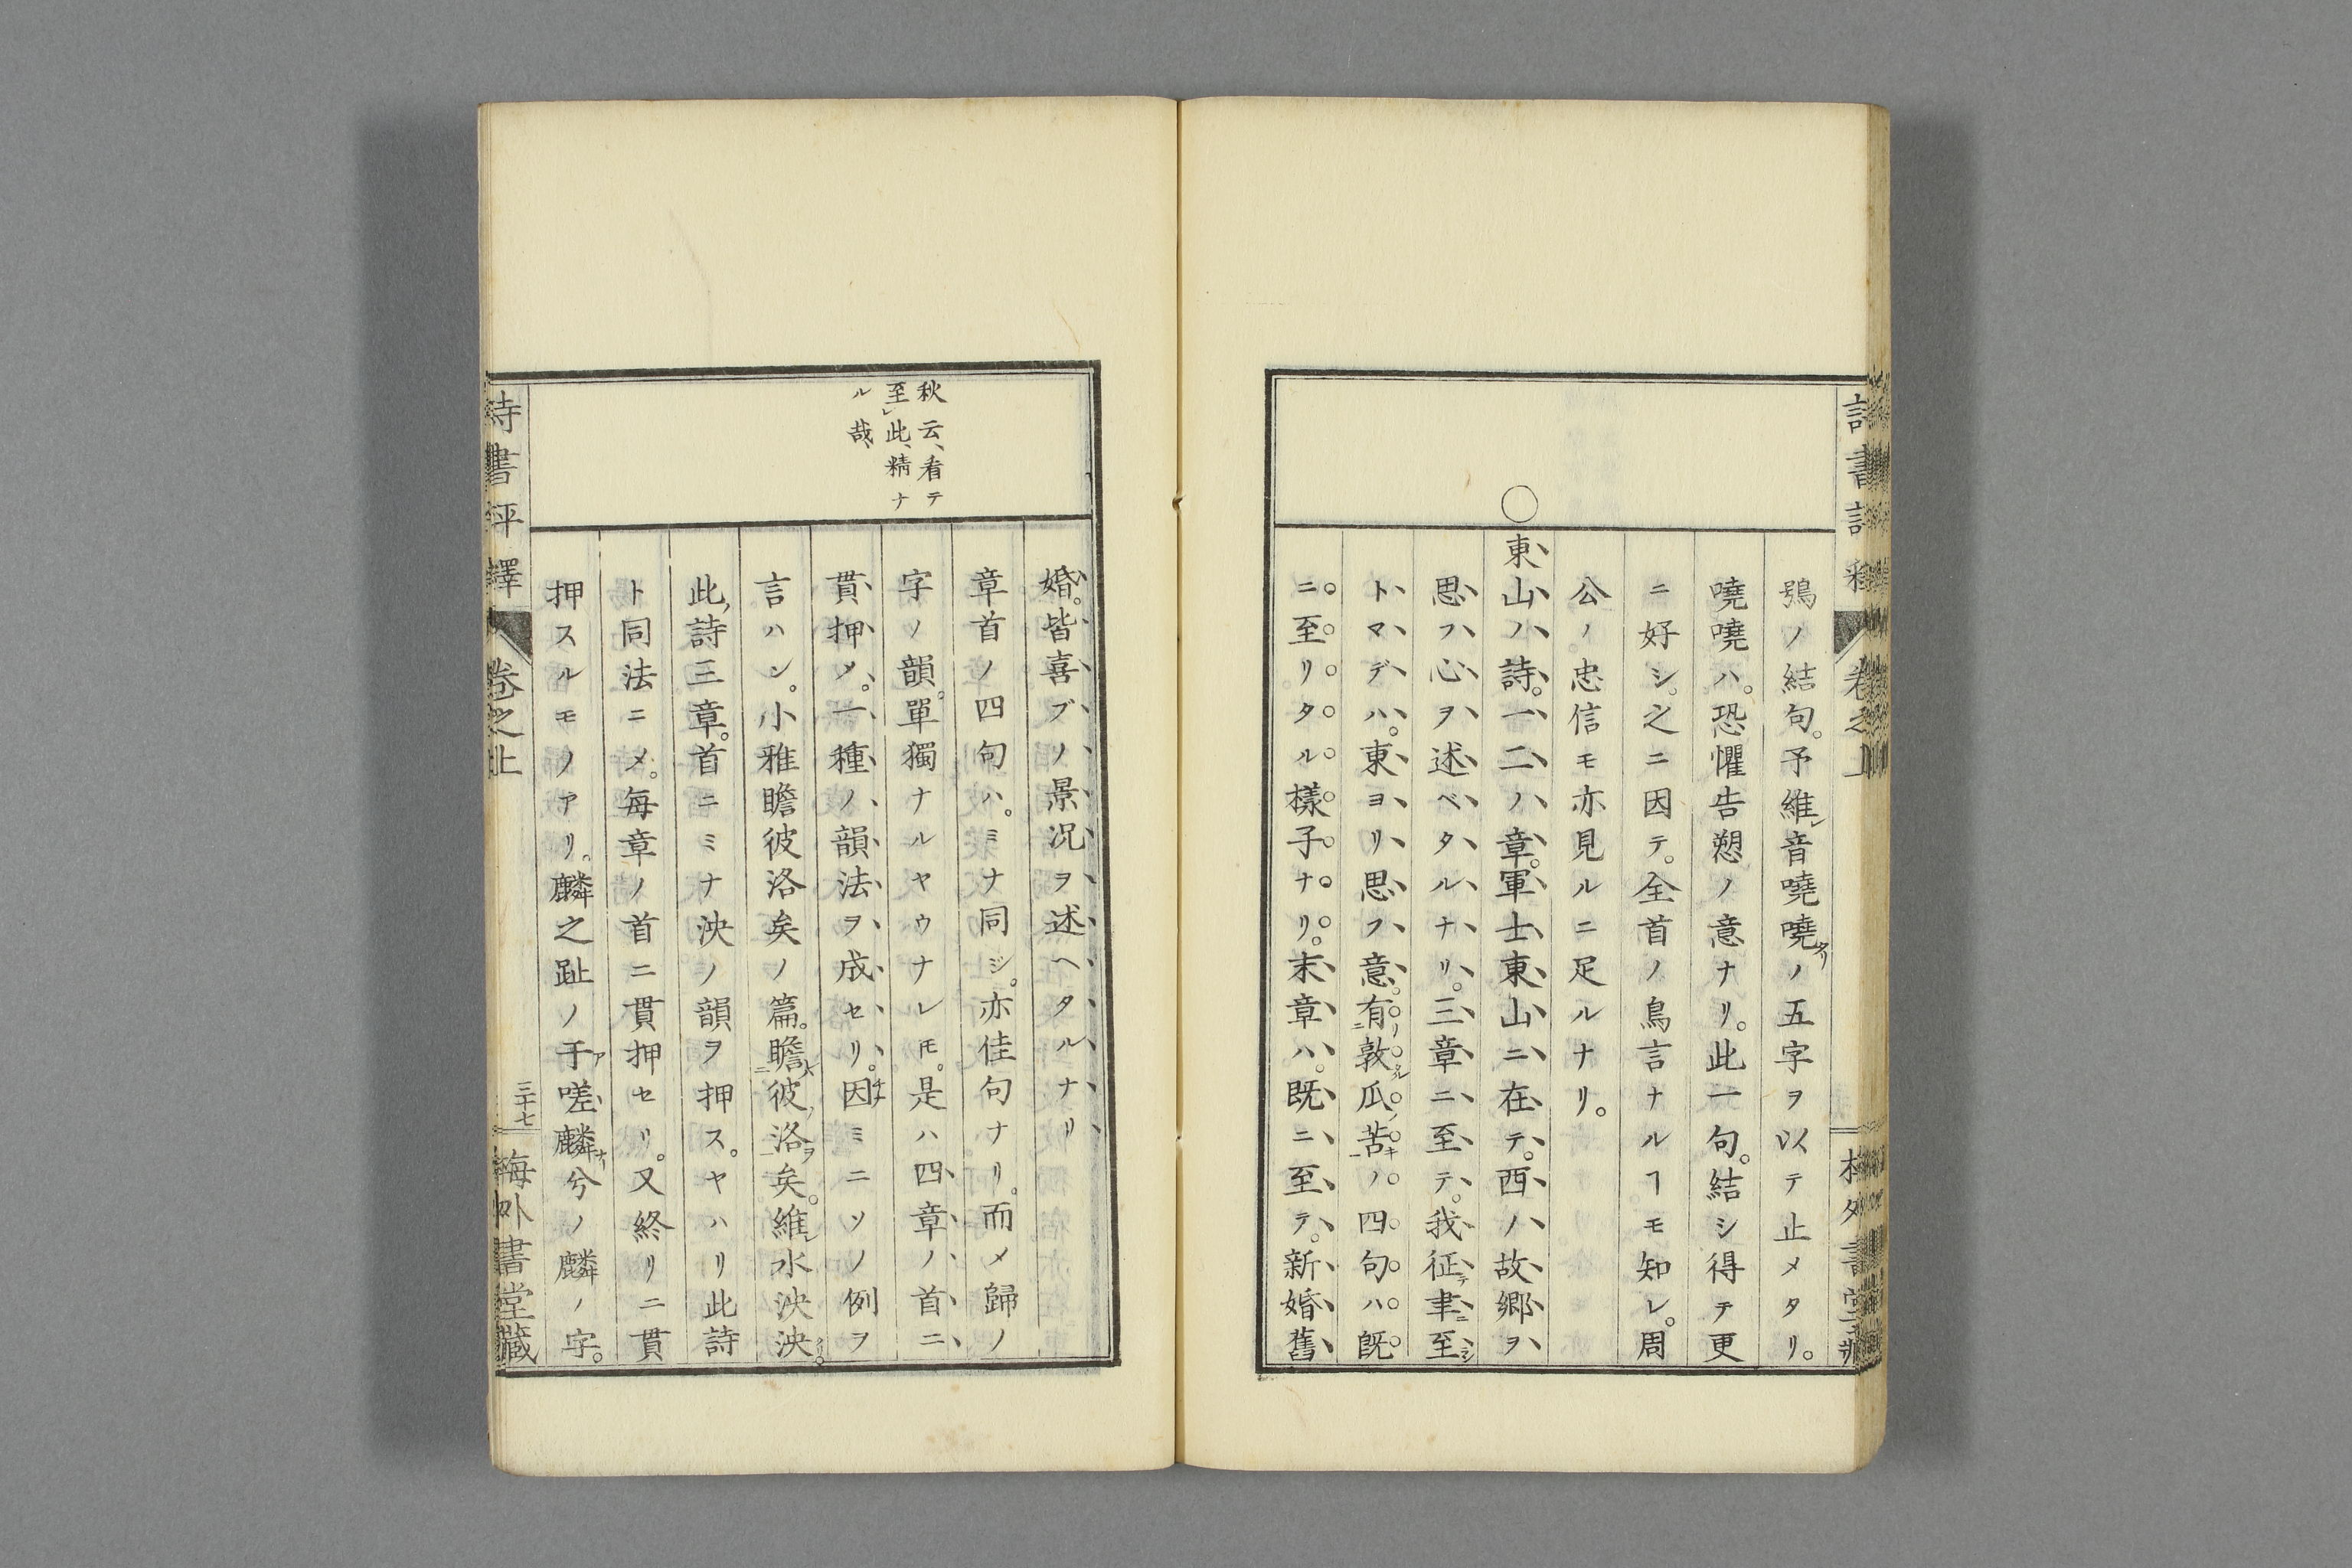 鴞ノ結句。予維レ音嘵嘵タリノ五字ヲ以テ止メタリ。
嘵嘵ハ。恐懼告愬ノ意ナリ。此一句。結シ得テ更
ニ好シ。之ニ因テ。全首ノ鳥言ナルヿモ知レ。周
公ノ忠信モ亦見ルニ足ルナリ。
〇
東山ノ詩。一二ノ章。軍士東山ニ在テ。西ノ故郷ヲ
思フ心ヲ述ベタルナリ。三章ニ至テ。我征聿至
トマデハ。東ヨリ思フ意。有敦瓜苦ノ四句ハ既
ニ至リタル樣子ナリ。末章ハ。既ニ至テ。新婚舊
婚。皆喜ブノ景況ヲ述ヘタルナリ
秋云、看テ
至レ此、精ナ
ル哉
章首ノ四句ハ。ミナ同ジ。亦佳句ナリ。而メ歸ノ
字ノ韻。單獨ナルヤウナレ𪜈。是ハ四章ノ首ニ
貫押メ。一種ノ韻法ヲ成セリ。因ミニソノ例ヲ
言ハン。小雅瞻彼洛矣ノ篇。瞻彼洛矣。維水泱泱。
此詩三章。首ニミナ泱ノ韻ヲ押ス。ヤハリ此詩
ト同法ニメ。毎章ノ首ニ貫押セリ。又終リニ貫
押スルモノアリ。麟之趾ノ于嗟麟兮ノ麟ノ字。
詩書評釋 卷之上 三十七 梅外書堂藏